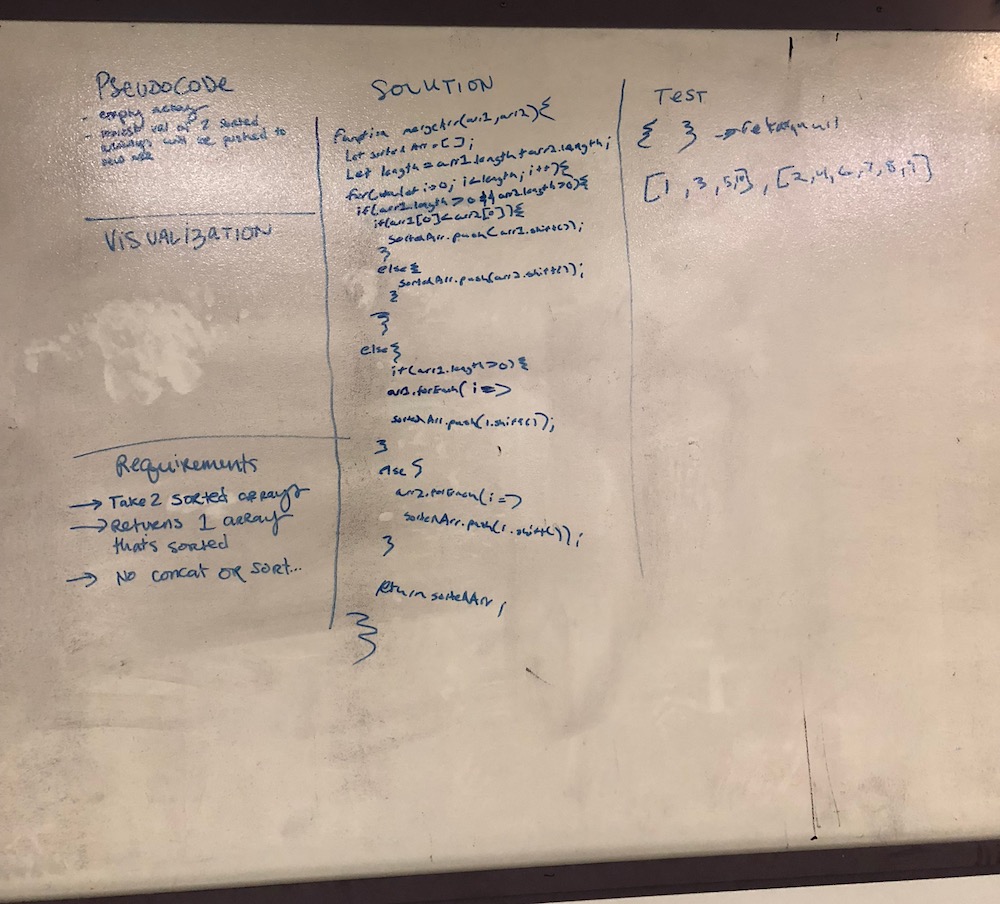 PSEUDOCODE
- empty array
- lowest val of 2 sorted
arrays will be pushed to
new
VISUALIZATION
Requirements
→ Take 2 sorted arrays
→ Returns 1 array
thats sorted
→ No concat or sort...
SOLUTION
function mergeArr(arr1,arr2){
Let sortedArr = [ ];
Let length = arr1.length + arr2.length;
for( let i=0; i<length; i++){
if(arr1.length > 0 && arr2.length>0){
if(arr1[0]<arr2[0]){
sortedArr.push(arr1.shift());
}
else{
sortedArr.push(arr2.shift());
}
}
else{
if(arr1.length>0){
.forEach( i =>
sortedArr.push(i.shift());
}
else {
arr2.forEach(i =>
sortedArr.push(i.shift());
}
return sortedArr;
}
}
TEST
{ } → null
[1, 3, 5, ], [2,4,6,7,8,9]